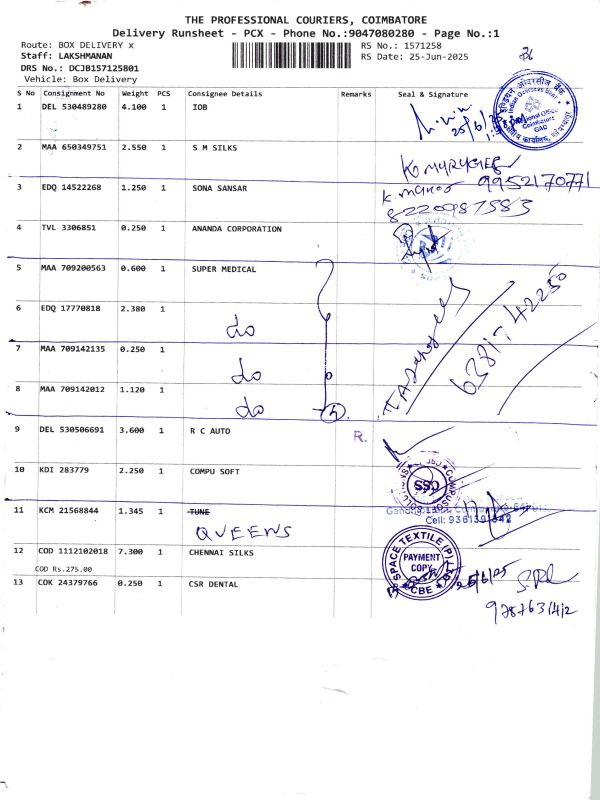 THE PROFESSIONAL COURIERS, COIMBATORE
Delivery Runsheet - PCX - Phone No.:9047080280 - Page No.:1
Route: BOX DELIVERY x
RS No.: 1571258
Staff: LAKSHMANAN
RS Date: 25-Jun-2025
DRS No.: DCJB157125801
Vehicle: Box Delivery
S No Consignment No Weight PCS Consignee Details Remarks Seal & Signature
1 DEL 530489280 4.100 1 IOB
25/6/25
Indian Overseas Bank
Regional Office
Coimbatore
GAD
2 MAA 650349751 2.550 1 S M SILKS
3 EDQ 14522268 1.250 1 SONA SANSAR
9952170771
8220987583
4 TVL 3306851 0.250 1 ANANDA CORPORATION
5 MAA 709200563 0.600 1 SUPER MEDICAL
6 EDQ 17770818 2.380 1
do
7 MAA 709142135 0.250 1
do
8 MAA 709142012 1.120 1
do
9 DEL 530506691 3.600 1 R C AUTO
R.
10 KDI 283779 2.250 1 COMPU SOFT
SSO
11 KCM 21568844 1.345 1 TUNE
QUEENS
12 COD 1112102018 7.300 1 CHENNAI SILKS
COD Rs.275.00
SPACE TEXTILE (P) LTD
PAYMENT
COPY
CBE
25/6/25
13 COK 24379766 0.250 1 CSR DENTAL